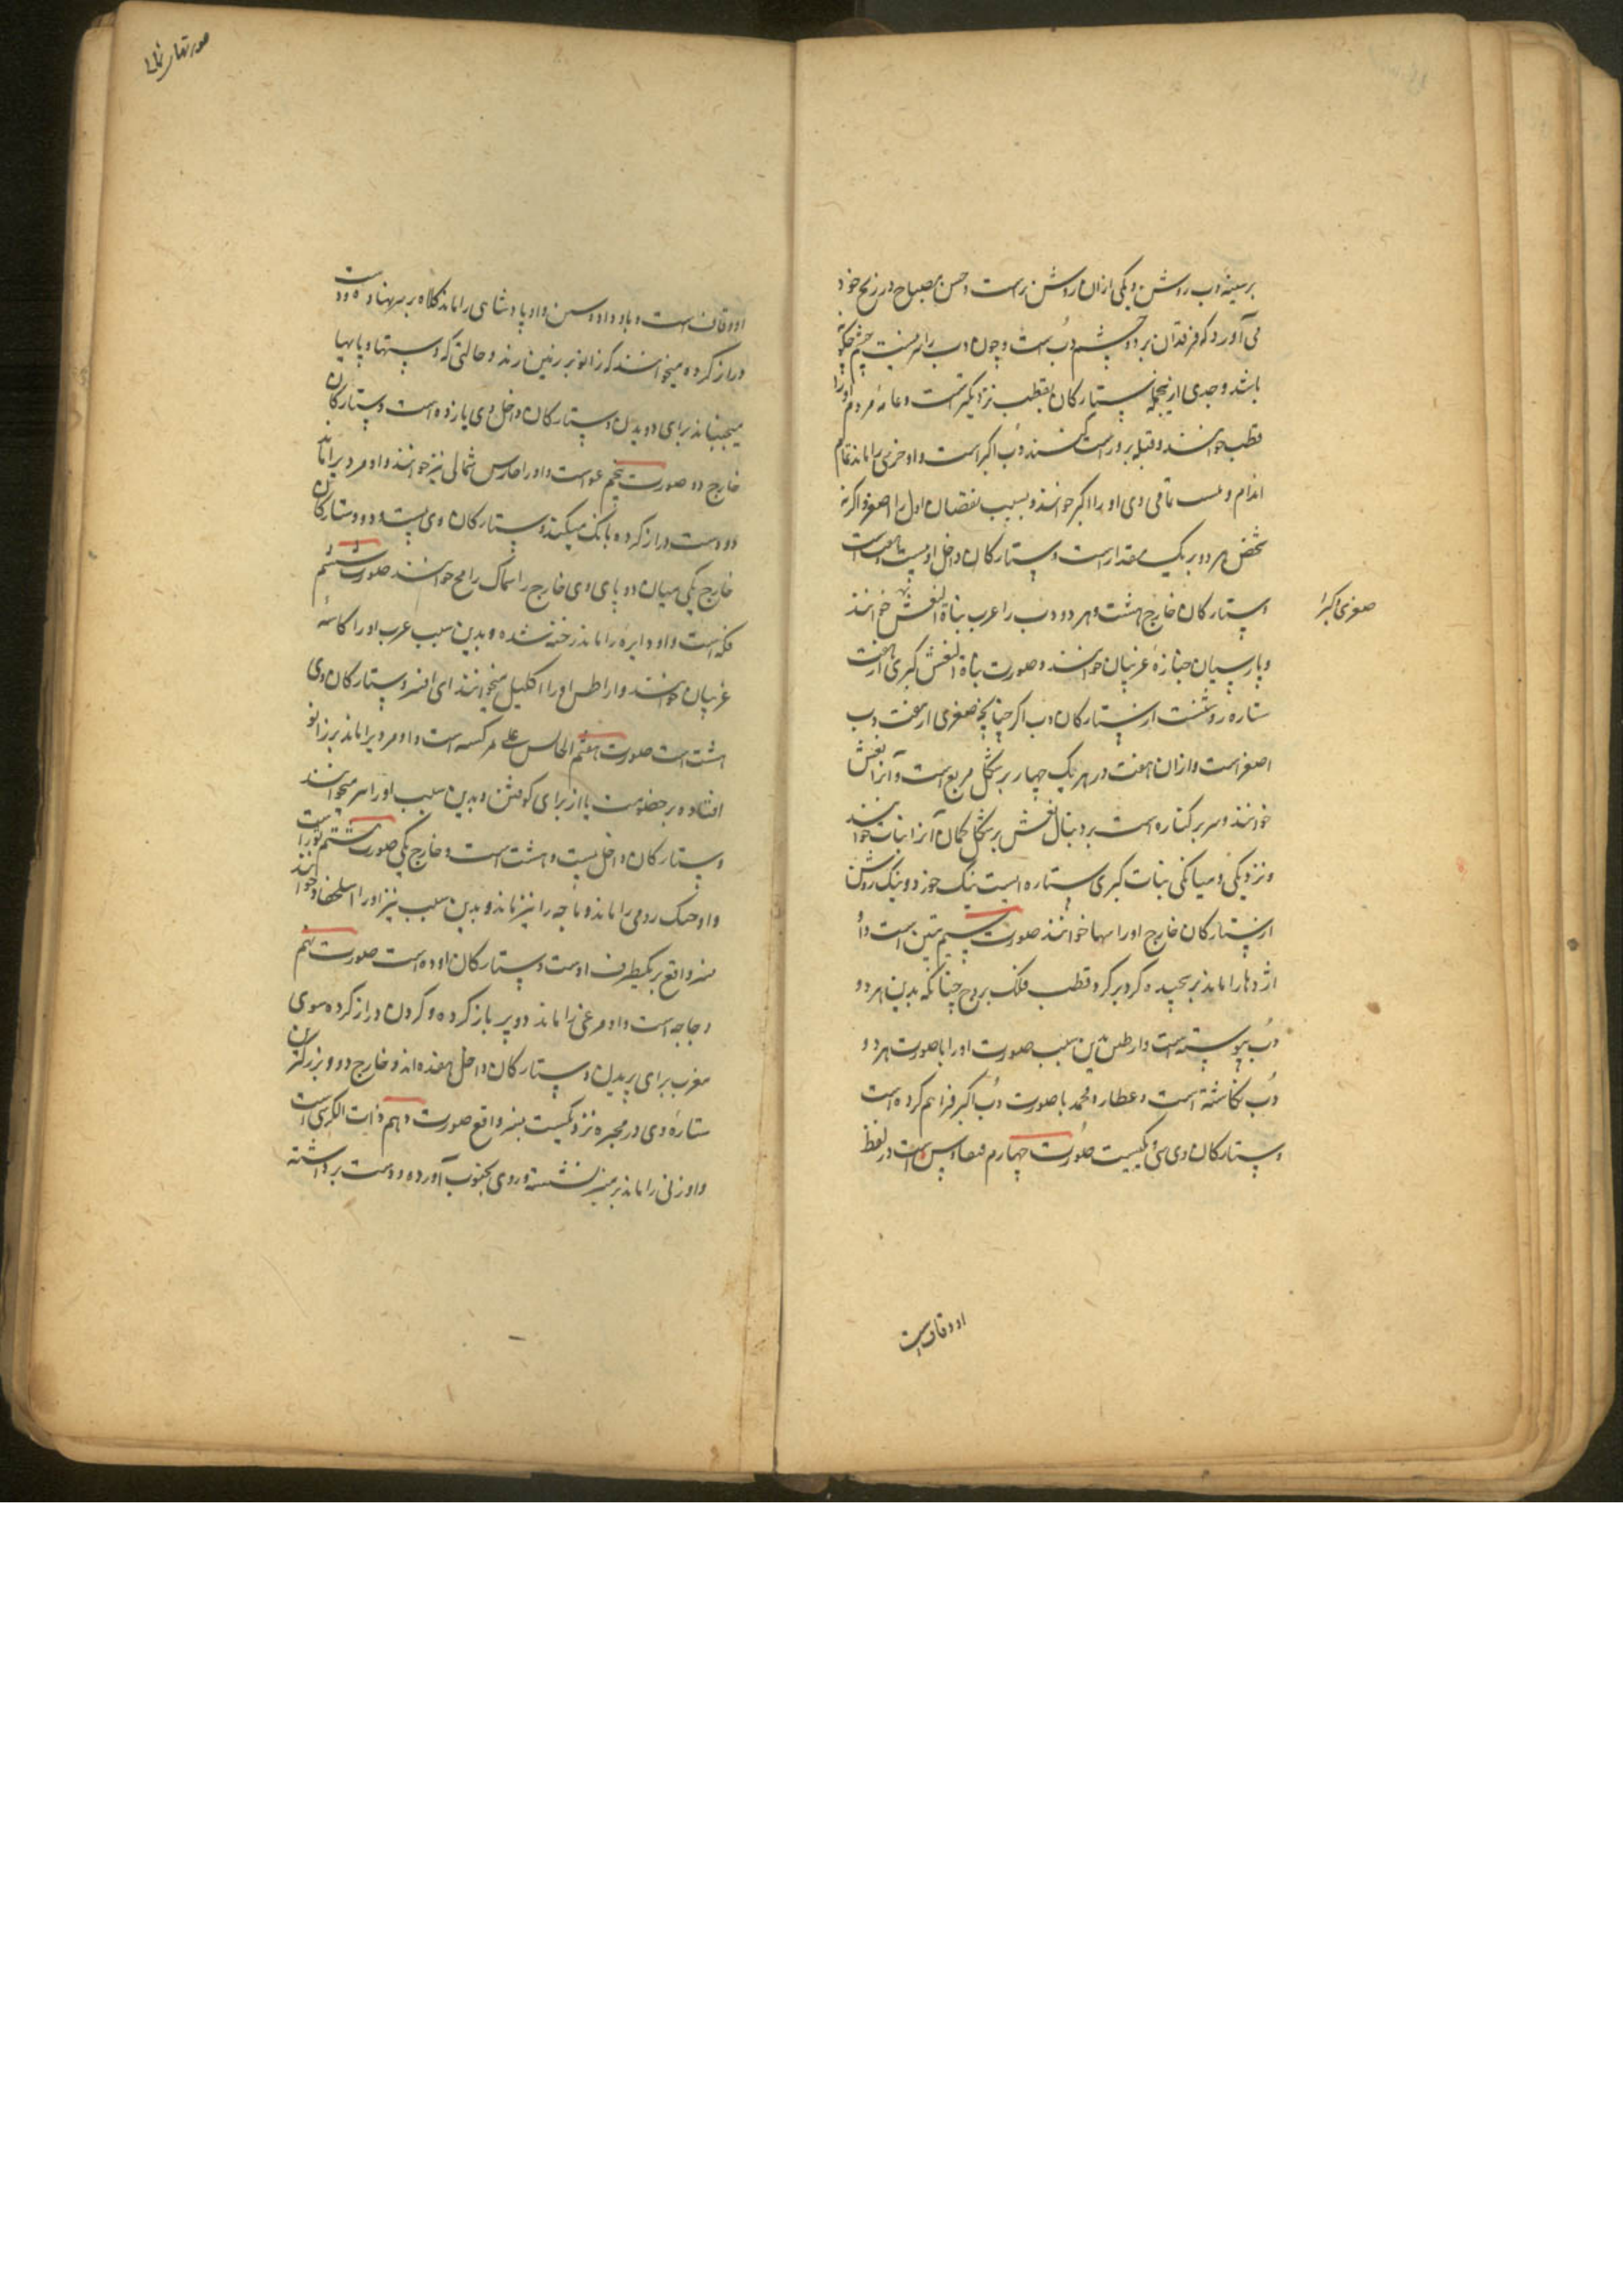 بر سینهٔ دب روشن و یکی ازان روشن ترست و حسن مصباح در زیج خود
می آورد که فرقدان بر دو چشم دب است و چون دب را سر نیست چشم چگونه
باشد و جدی از نجمله ستارکان بقطب نزدیکترست و عامهٔ مردم اورا
قطب خوانند و قبله برو راست کنند دب اکبر است و او خرسی را ماند تمام
اندام و او را اکبر خوانند و بسبب نقصان اول را اصغر و اگر نه
شخص هر دو بر یک مقدار است و ستارکان داخل او بیست و هفت است
وستارکان خارج هشت و هر دو دب را عرب بناة النعش خوانند
صغری اکبرا
و پارسیان جنازهٔ غریبان خوانند و صورت بناة النعش کبری از هفت
ستاره روشنست از ستارکان دب اکبر چنانچه صغری از هفت دب
اصغر است وازان هفت در هر یک چهار بر شکل مربع است و آنرا نعش
خوانند و سر بر کناره است بر دنبال نعش بر شکل کمان آنرا بنات خوانند
و نزدیکی و میانکی بنات کبری ستاره ایست نیک خورد و نیک روشن
از ستارکان خارج اورا سها خوانند صورت سیم تنین است و او
اژدها را ماند بر پیچیده کرد بر کرد قطب فلک بروج چنانکه بدین هر دو
دب پیوسته است وارطس بدین سبب صورت اورا با صورت هر دو
دب نکاشته است و عطارد محمد با صورت دب اکبر فراهم کرده است
وستارکان وی سی و یکیست صورت چهارم قیقاوس است و در لفظ
او وقاوس است
صورتهای شمالی
او وقاف است و باد و او و سین و او پادشاهی را ماند کلاه بر سر نهاده و دست
دراز کرده میخوانند که زانو بر زمین زند و حالتی که دستها و پایها
میجنباند برای دویدن و ستارکان داخل وی یازده است و ستارکان
خارج دو صورت پنجم عواست و اورا حارس شمالی نیز خوانند و او مردیرا ماند
دو دست دراز کرده بانک میکند و ستارکان وی بیست و دو و ستارکان
خارج یکی میان دو پای وی خارج را سماک رامح خوانند صورت ششم
فکه است و او دایره را ماند رخنه شده و بدین سبب عرب اورا کاسهٔ
غریبان خوانند و اراطس اورا اکلیل میخوانند ای افسر و ستارکان وی
هشت است صورت هفتم الجاثی علی رکبتیه است و او مردیرا ماند بر زانو
افتاده بر خصومت یا از برای کوفتن و بدین سبب اورا میخوانند
وستارکان داخل بیست و هشت است و خارج یکی صورت هشتم لورا است
و او چنک رومی را ماند و باخه را نیز ماند و بدین سبب نیز اورا سلحفاة خوانند
نسر واقع بر یکطرف اوست و ستارکان او ده است صورت نهم
دجاجه است و او مرغی را ماند دو پر باز کرده و کردن دراز کرده سوی
مغرب برای پریدن و ستارکان داخل هفده اند و خارج دو و بزرکترین
ستارهٔ وی در مجره نزدیکیست بنسر واقع صورت دهم ذات الکرسی است
و او زنی را ماند بر منبر نشسته و روی بجنوب آورده و دست برداشته